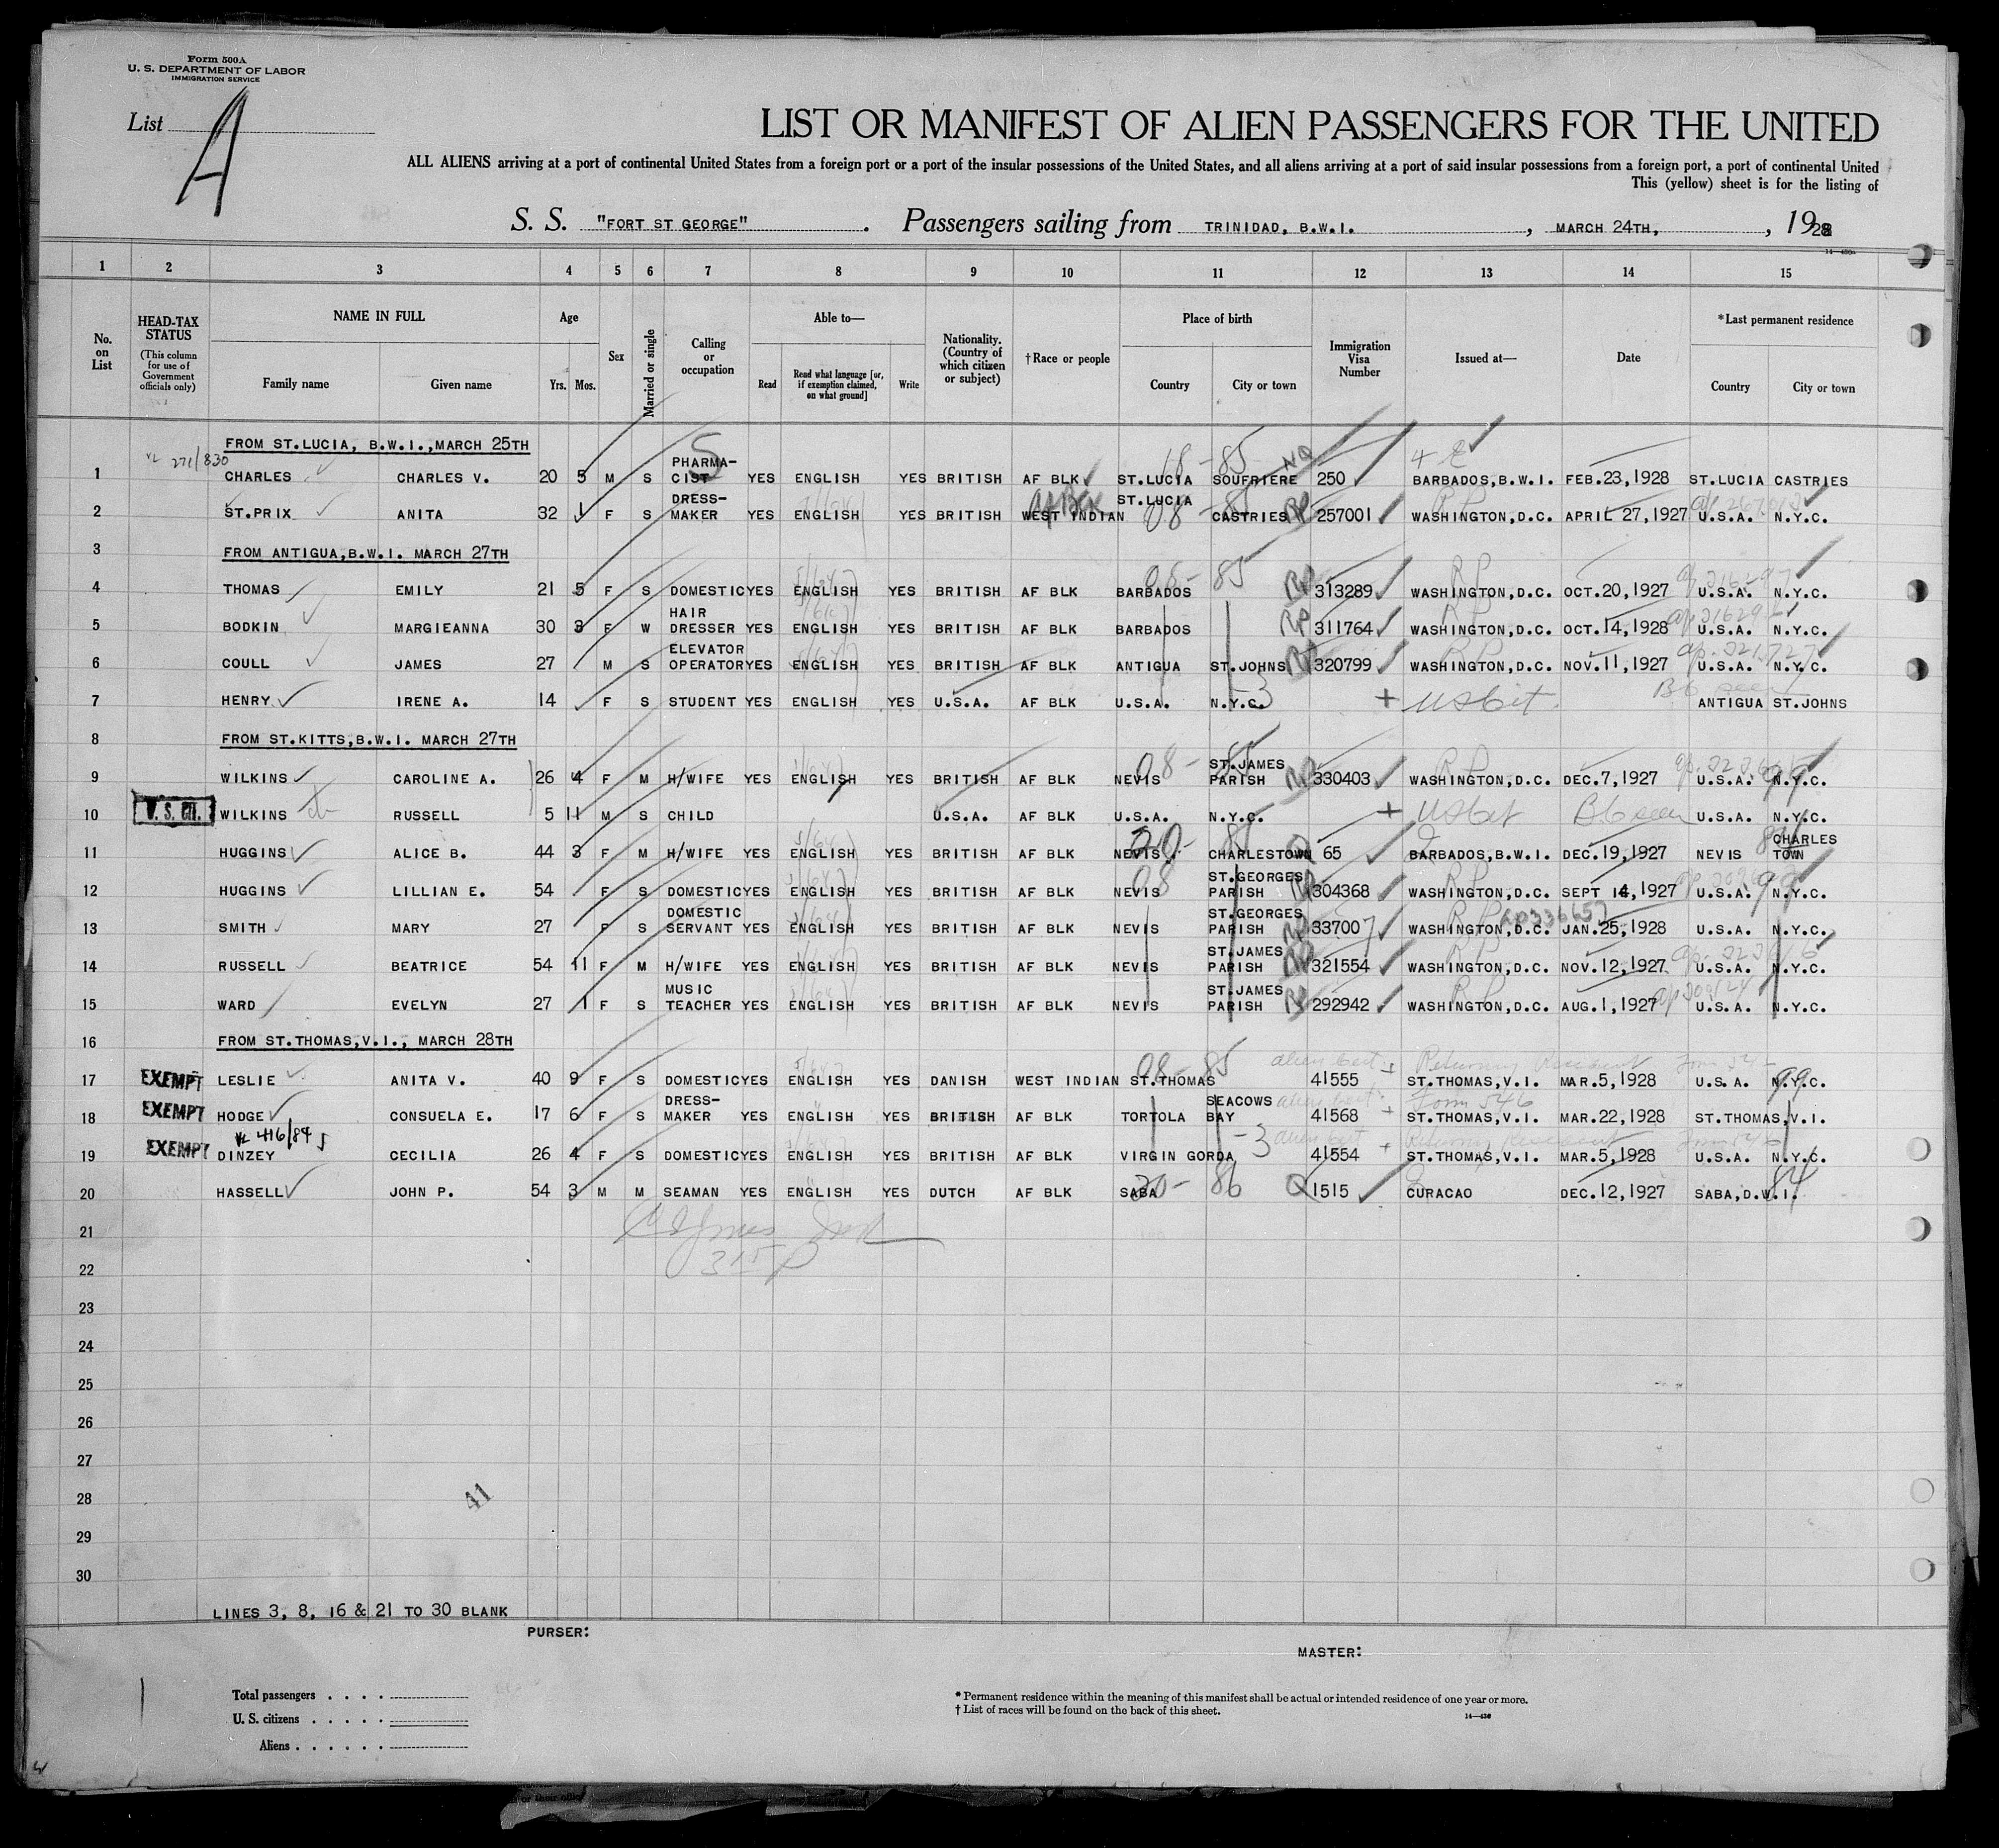 Form 500A
U. S. DEPARTMENT OF LABOR
IMMIGRATION SERVICE
List A
LIST OR MANIFEST OF ALIEN PASSENGERS FOR THE UNITED
ALL ALIENS arriving at a port of continental United States from a foreign port or a port of the insular possessions of the United States, and all aliens arriving at a port of said insular possessions from a foreign port, a port of continental United
This (yellow) sheet is for the listing of
S. S. "FORT ST GEORGE". Passengers sailing from TRINIDAD, B.W.I., MARCH 24TH, , 1928
1 2 3 4 5 6 7 8 9 10 11 12 13 14 15
No. on List
HEAD-TAX STATUS (This column for use of Government officials only)
NAME IN FULL Family name Given name
Age Yrs. Mos.
Sex
Married or single
Calling or occupation
Able to— Read Read what language [or, if exemption claimed, on what ground] Write
Nationality. (Country of which citizen or subject)
†Race or people
Place of birth Country City or town
Immigration Visa Number
Issued at—
Date
*Last permanent residence Country City or town
FROM ST.LUCIA, B.W.I., MARCH 25TH
1 271/830 CHARLES CHARLES V. 20 5 M S PHARMA-CIST YES ENGLISH YES BRITISH AF BLK ST.LUCIA SOUFRIERE 250 BARBADOS, B.W.I. FEB.23,1928 ST.LUCIA CASTRIES
2 ST.PRIX ANITA 32 1 F S DRESS-MAKER YES ENGLISH YES BRITISH WEST INDIAN Af Blk ST.LUCIA CASTRIES RP 257001 WASHINGTON,D.C. APRIL 27,1927 U.S.A. N.Y.C.
3 FROM ANTIGUA,B.W.I. MARCH 27TH
4 THOMAS EMILY 21 5 F S DOMESTIC YES ENGLISH YES BRITISH AF BLK BARBADOS 08-85 RP 313289 WASHINGTON,D.C. OCT.20,1927 U.S.A. N.Y.C.
5 BODKIN MARGIEANNA 30 3 F W HAIR DRESSER YES ENGLISH YES BRITISH AF BLK BARBADOS RP 311764 WASHINGTON,D.C. OCT.14,1928 U.S.A. N.Y.C.
6 COULL JAMES 27 M S ELEVATOR OPERATOR YES ENGLISH YES BRITISH AF BLK ANTIGUA ST.JOHNS RP 320799 WASHINGTON,D.C. NOV.11,1927 U.S.A. N.Y.C.
7 HENRY IRENE A. 14 F S STUDENT YES ENGLISH YES U.S.A. AF BLK U.S.A. N.Y.C. + ANTIGUA ST.JOHNS
8 FROM ST.KITTS,B.W.I. MARCH 27TH
9 WILKINS CAROLINE A. 26 4 F M H/WIFE YES ENGLISH YES BRITISH AF BLK NEVIS 08-85 ST.JAMES PARISH RP 330403 WASHINGTON,D.C. DEC.7,1927 U.S.A. N.Y.C.
10 U. S. CIT. WILKINS RUSSELL 5 11 M S CHILD U.S.A. AF BLK U.S.A. N.Y.C. + U.S.A. N.Y.C.
11 HUGGINS ALICE B. 44 3 F M H/WIFE YES ENGLISH YES BRITISH AF BLK NEVIS CHARLESTOWN Q 65 BARBADOS,B.W.I. DEC.19,1927 NEVIS CHARLES TOWN
12 HUGGINS LILLIAN E. 54 F S DOMESTIC YES ENGLISH YES BRITISH AF BLK NEVIS 08 ST.GEORGES PARISH RP 304368 WASHINGTON,D.C. SEPT 14,1927 U.S.A. 99 N.Y.C.
13 SMITH MARY 27 F S DOMESTIC SERVANT YES ENGLISH YES BRITISH AF BLK NEVIS ST.GEORGES PARISH RP 337007 WASHINGTON,D.C. JAN.25,1928 U.S.A. N.Y.C.
14 RUSSELL BEATRICE 54 11 F M H/WIFE YES ENGLISH YES BRITISH AF BLK NEVIS ST.JAMES PARISH RP 321554 WASHINGTON,D.C. NOV.12,1927 U.S.A. N.Y.C.
15 WARD EVELYN 27 1 F S MUSIC TEACHER YES ENGLISH YES BRITISH AF BLK NEVIS ST.JAMES PARISH RP 292942 WASHINGTON,D.C. AUG.1,1927 U.S.A. N.Y.C.
16 FROM ST.THOMAS,V.I., MARCH 28TH
17 EXEMPT LESLIE ANITA V. 40 9 F S DOMESTIC YES ENGLISH YES DANISH WEST INDIAN ST.THOMAS 08-85 41555 ST.THOMAS,V.I. MAR.5,1928 U.S.A. 99 N.Y.C.
18 EXEMPT HODGE CONSUELA E. 17 6 F S DRESS-MAKER YES ENGLISH YES BRITISH AF BLK TORTOLA SEACOWS BAY 41568 Form 546 ST.THOMAS,V.I. MAR.22,1928 ST.THOMAS,V.I.
19 EXEMPT 416/84 DINZEY CECILIA 26 4 F S DOMESTIC YES ENGLISH YES BRITISH AF BLK VIRGIN GORDA 41554 ST.THOMAS,V.I. MAR.5,1928 U.S.A. N.Y.C.
20 HASSELL JOHN P. 54 3 M M SEAMAN YES ENGLISH YES DUTCH AF BLK SABA 86 Q 1515 CURACAO DEC.12,1927 SABA,D.W.I. 84
21
22
23
24
25
26
27
28 41
29
30
LINES 3, 8, 16 & 21 TO 30 BLANK
PURSER:
MASTER:
Total passengers . . . .
U. S. citizens . . . . .
Aliens . . . . . .
* Permanent residence within the meaning of this manifest shall be actual or intended residence of one year or more.
† List of races will be found on the back of this sheet.
14—430